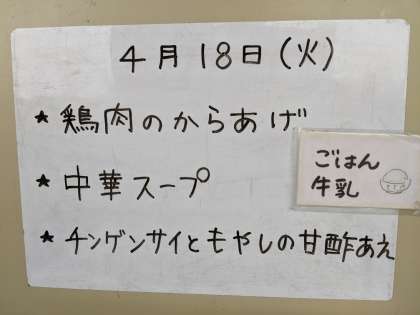 4月18日(火)
★鶏肉のからあげ
★中華スープ
★チンゲンサイともやしの甘酢あえ
ごはん
牛乳